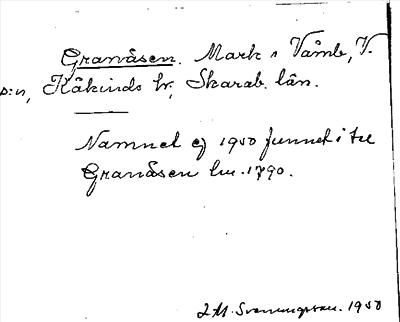 Granåsen. Mark i Våmb, V.
s:n, Kåkinds hr, Skarab. län.
Namnet ej 1950 funnet i tee
Granåsen lm. 1790.
J.M. Svenningsson. 1950